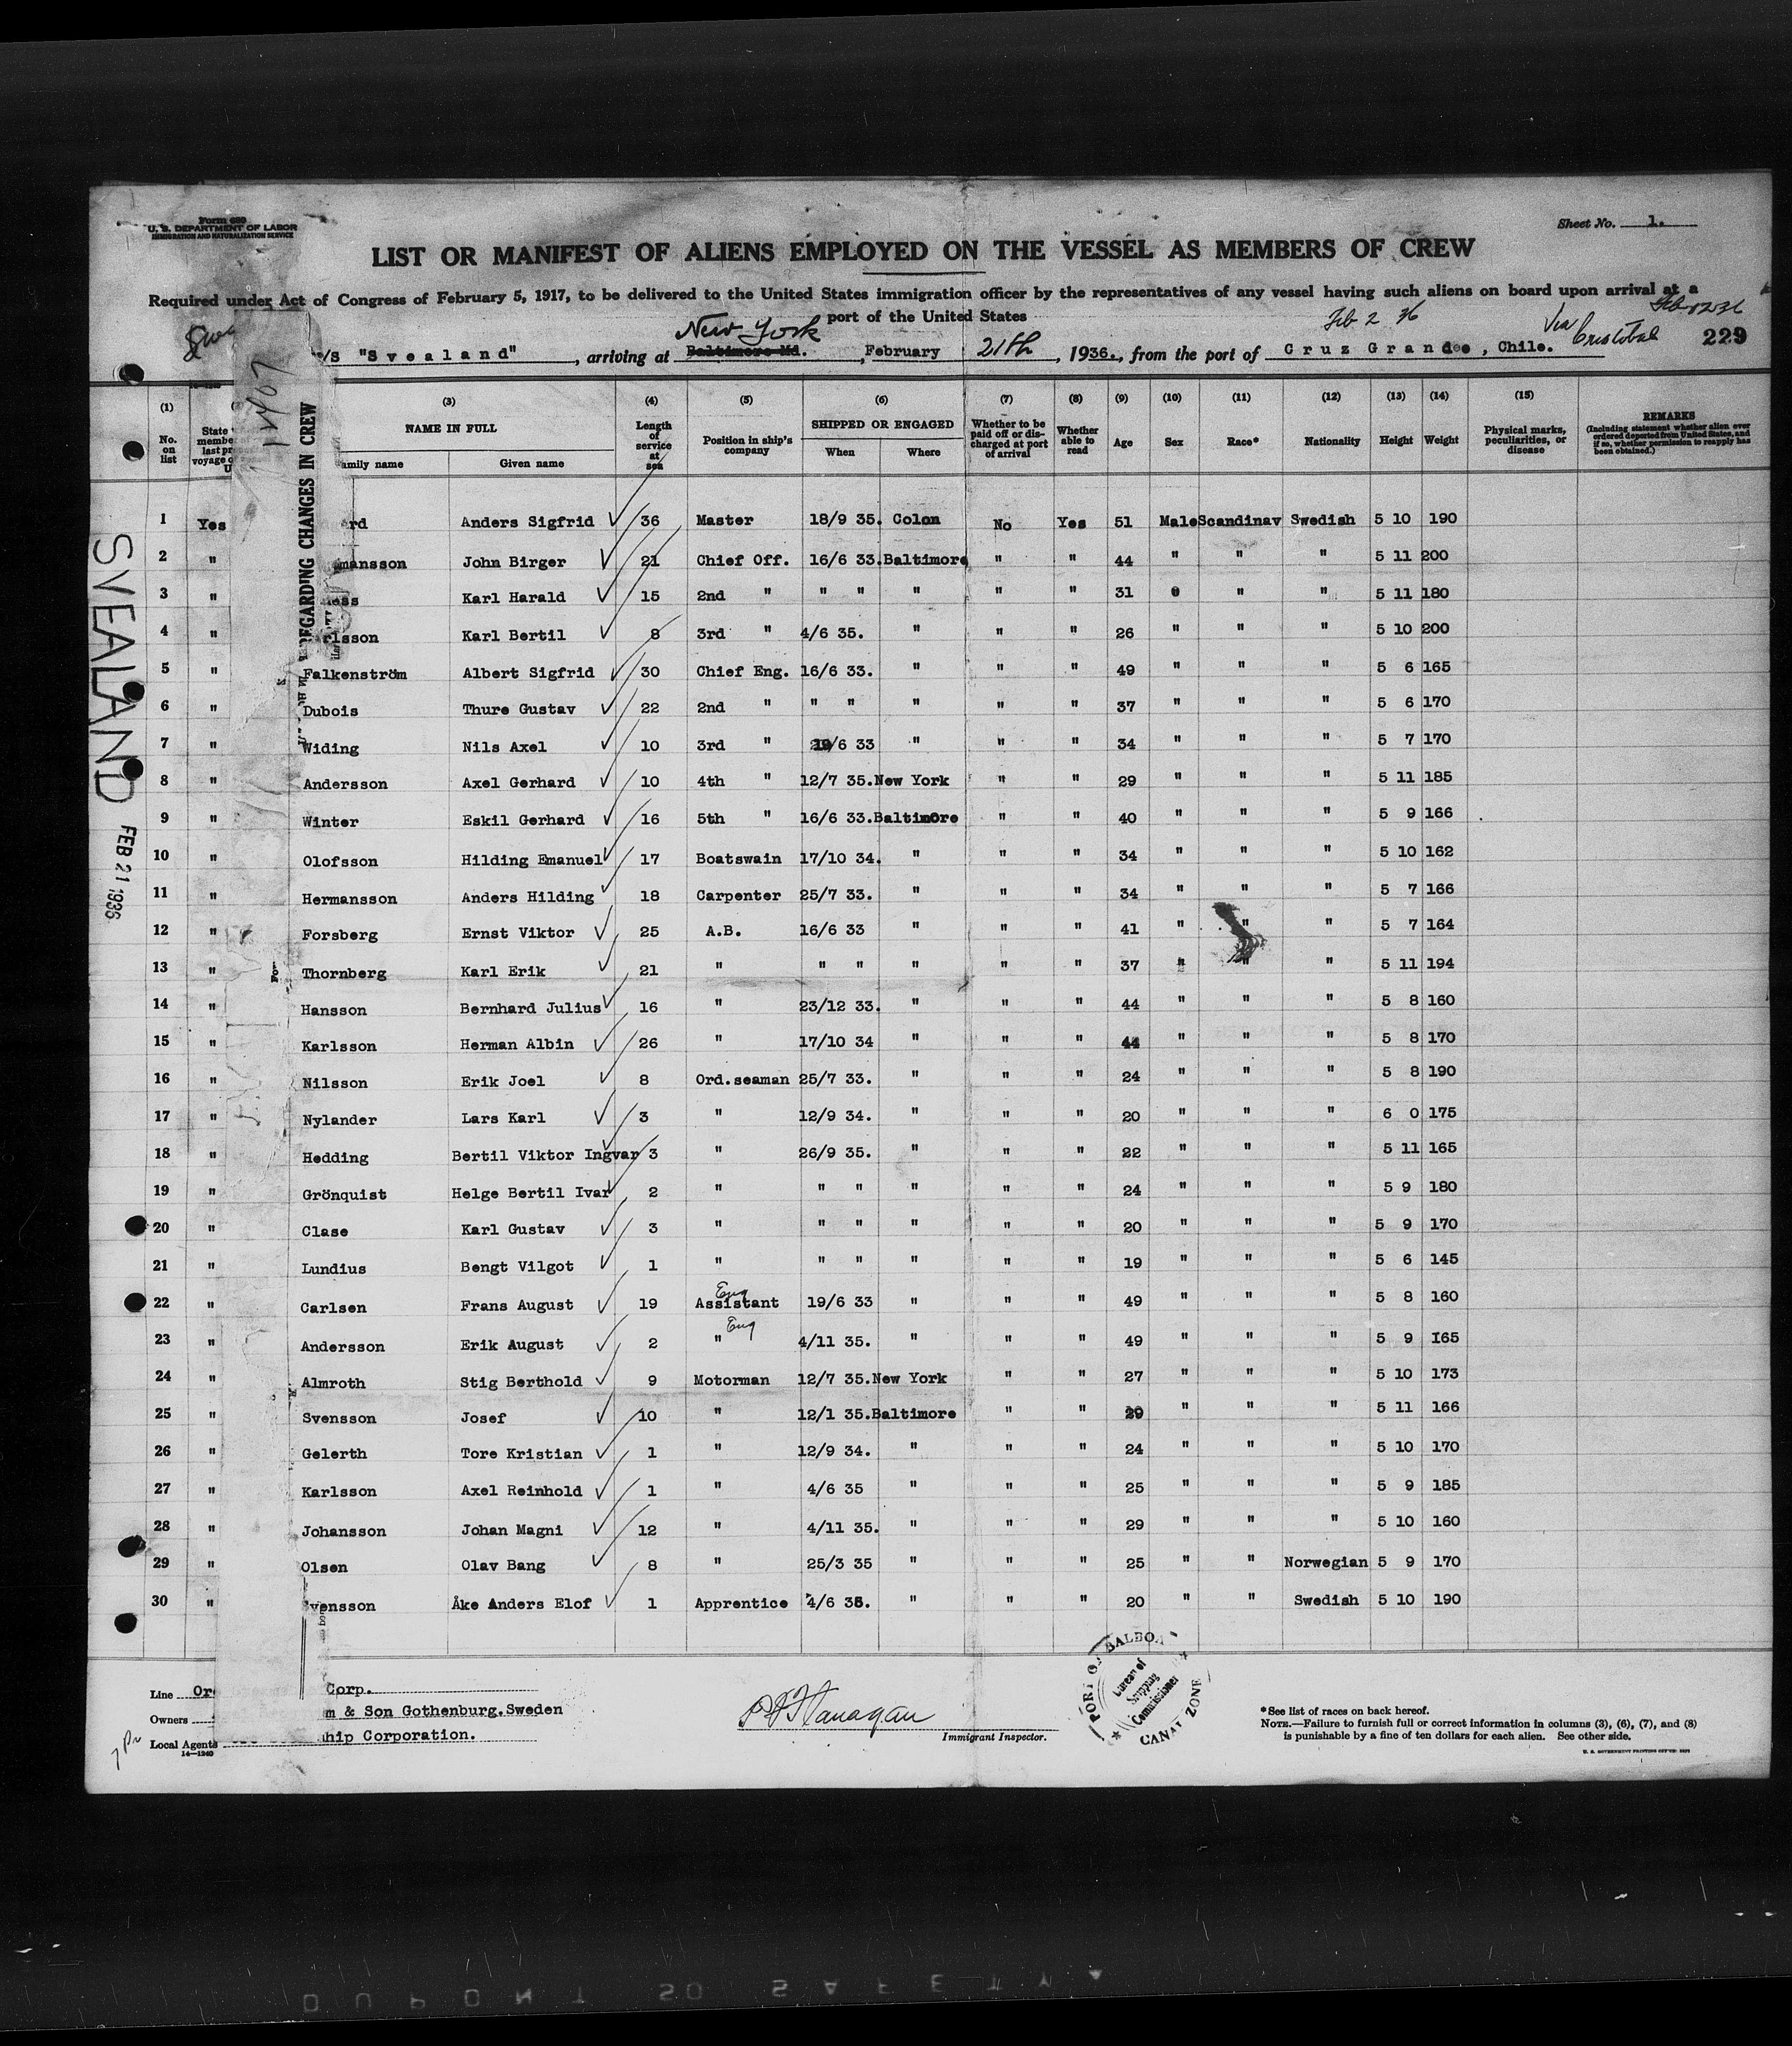 Form 680
U. S. DEPARTMENT OF LABOR
IMMIGRATION AND NATURALIZATION SERVICE
Sheet No. 1.
LIST OR MANIFEST OF ALIENS EMPLOYED ON THE VESSEL AS MEMBERS OF CREW
Required under Act of Congress of February 5, 1917, to be delivered to the United States immigration officer by the representatives of any vessel having such aliens on board upon arrival at a
port of the United States
New York Feb 2 36 Via Cristobal 229
/S "Svealand", arriving at Baltimore Md., February 21th, 1936., from the port of Cruz Grande, Chile.
REGARDING CHANGES IN CREW
(1) (3) (4) (5) (6) (7) (8) (9) (10) (11) (12) (13) (14) (15)
No. on list NAME IN FULL Length of service at sea Position in ship's company SHIPPED OR ENGAGED Whether to be paid off or discharged at port of arrival Whether able to read Age Sex Race* Nationality Height Weight Physical marks, peculiarities, or disease REMARKS
(Including statement whether alien ever ordered deported from United States, and if so, whether permission to reapply has been obtained.)
amily name Given name When Where
1 Yes rd Anders Sigfrid 36 Master 18/9 35. Colon No Yes 51 Male Scandinav Swedish 5 10 190
2 " mansson John Birger 21 Chief Off. 16/6 33. Baltimore " " 44 " " " 5 11 200
3 " ss Karl Harald 15 2nd " " " " " " 31 " " 5 11 180
4 " rlsson Karl Bertil 8 3rd " 4/6 35. " " " 26 " " " 5 10 200
5 " Falkenström Albert Sigfrid 30 Chief Eng. 16/6 33. " " " 49 " " " 5 6 165
6 " Dubois Thure Gustav 22 2nd " " " " " " 37 " " " 5 6 170
7 " Widing Nils Axel 10 3rd " /6 33 " " " 34 " " " 5 7 170
8 " Andersson Axel Gerhard 10 4th " 12/7 35. New York " " 29 " " " 5 11 185
9 " Winter Eskil Gerhard 16 5th " 16/6 33. Baltimore " " 40 " " " 5 9 166
10 " Olofsson Hilding Emanuel 17 Boatswain 17/10 34. " " " 34 " " " 5 10 162
11 " Hermansson Anders Hilding 18 Carpenter 25/7 33. " " " 34 " " " 5 7 166
12 " Forsberg Ernst Viktor 25 A.B. 16/6 33 " " " 41 " " " 5 7 164
13 " Thornberg Karl Erik 21 " " " " " " 37 " " " 5 11 194
14 " Hansson Bernhard Julius 16 " 23/12 33. " " " 44 " " " 5 8 160
15 " Karlsson Herman Albin 26 " 17/10 34 " " " 44 " " " 5 8 170
16 " Nilsson Erik Joel 8 Ord.seaman 25/7 33. " " " 24 " " " 5 8 190
17 " Nylander Lars Karl 3 " 12/9 34. " " " 20 " " " 6 0 175
18 " Hedding Bertil Viktor Ingvar 3 " 26/9 35. " " " 22 " " " 5 11 165
19 " Grönquist Helge Bertil Ivar 2 " " " " " " 24 " " " 5 9 180
20 " Clase Karl Gustav 3 " " " " " " 20 " " " 5 9 170
21 " Lundius Bengt Vilgot 1 " " " " " " 19 " " " 5 6 145
22 " Carlsen Frans August 19 Eng Assistant 19/6 33 " " " 49 " " " 5 8 160
23 " Andersson Erik August 2 " Eng 4/11 35. " " " 49 " " " 5 9 I65
24 " Almroth Stig Berthold 9 Motorman 12/7 35. New York " " 27 " " " 5 10 173
25 " Svensson Josef 10 " 12/1 35. Baltimore " " 29 " " " 5 11 166
26 " Gelerth Tore Kristian 1 " 12/9 34. " " " 24 " " " 5 10 170
27 " Karlsson Axel Reinhold 1 " 4/6 35 " " " 25 " " " 5 9 185
28 " Johansson Johan Magni 12 " 4/11 35. " " " 29 " " " 5 10 160
29 " Olsen Olav Bang 8 " 25/3 35 " " " 25 " " Norwegian 5 9 170
30 " Svensson Åke Anders Elof 1 Apprentice 4/6 35. " " " 20 " " Swedish 5 10 190
SVEALAND
FEB 21 1936
Line Or Corp.
Owners m & Son Gothenburg.Sweden
Local Agents hip Corporation.
14—1240
P J Flanagan
Immigrant Inspector.
PORT OF BALBOA
Bureau of
Shipping
Commissioner
CANAL ZONE
*See list of races on back hereof.
NOTE.—Failure to furnish full or correct information in columns (3), (6), (7), and (8)
is punishable by a fine of ten dollars for each alien. See other side.
DUPONT SO SAFETY